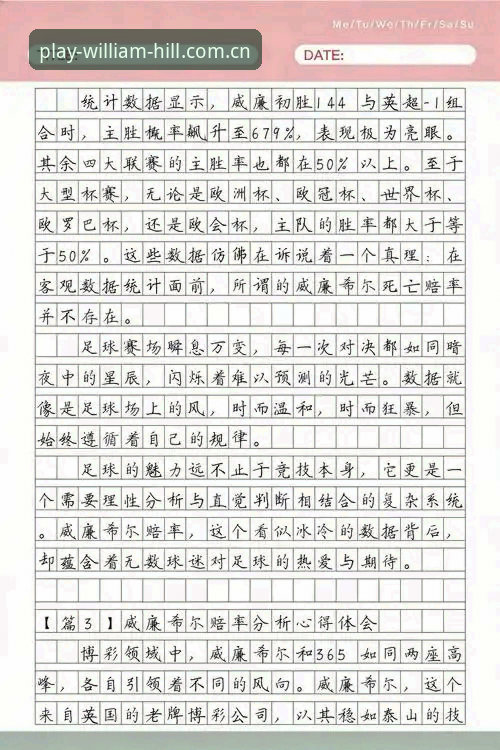 Me/Tu/We/Th/Fr/Sa/Su
play-william-hill.com.cn
DATE:
统计数据显示，威廉初胜144 与英超-1组
合时，主胜概率飙升至679%，表现极为亮眼。
其余四大联赛的主胜率也都在50% 以上。至于
大型杯赛，无论是欧洲杯、欧冠杯、世界杯、
欧罗巴杯，还是欧会杯，主队的胜率都大于等
于50% 。这些数据仿佛在诉说着一个真理：在
客观数据统计面前，所谓的威廉希尔死亡赔率
并不存在。
足球赛场瞬息万变，每一次对决都如同暗
夜中的星辰，闪烁着难以预测的光芒。数据就
像是足球场上的风，时而温和，时而狂暴，但
始终遵循着自己的规律。
足球的魅力远不止于竞技本身，它更是一
个需要理性分析与直觉判断相结合的复杂系统
。威廉希尔赔率，这个看似冰冷的数据背后，
却蕴含着无数球迷对足球的热爱与期待。
【篇3】威廉希尔赔率分析心得体会
博彩领域中，威廉希尔和365 如同两座高
峰，各自引领着不同的风向。威廉希尔，这个
来自英国的老牌博彩公司，以其稳如泰山的技